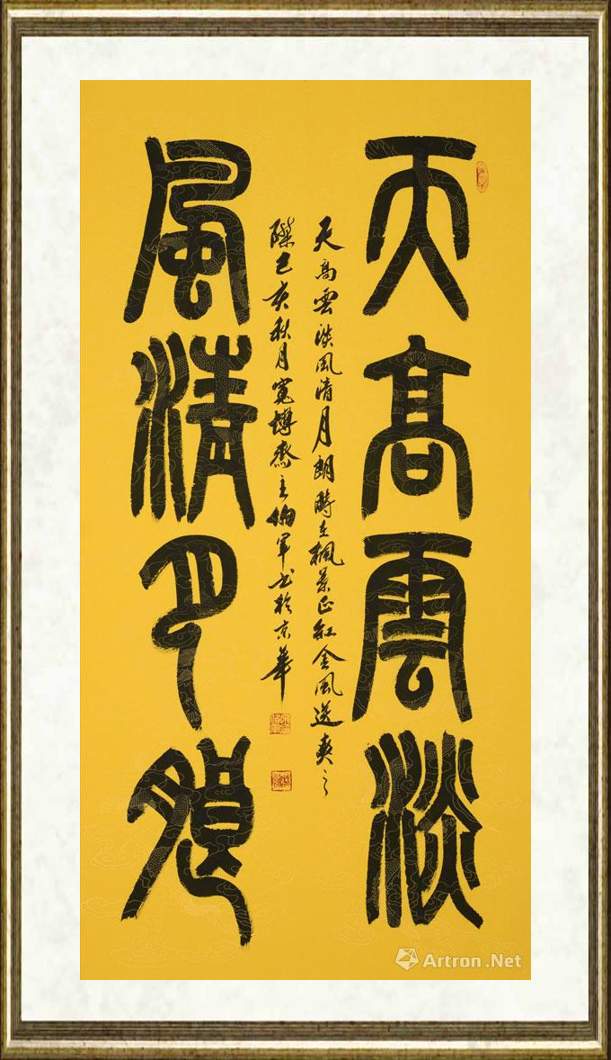 天高雲淡
風清月朗
天高雲淡風清月朗時在楓景正紅金風送爽之
際己亥秋月寬博齋主 軍书於京華
Artron.Net